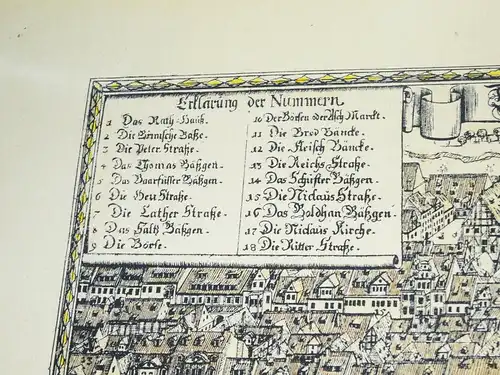 Erklärung der Nummern
1 Das Rath-Hauß.
2 Die Grimische Gaße.
3 Die Peter Straße.
4 Das Thomas Gäßgen.
5 Das Baarfüsser Gäßgen.
6 Die Heu Straße.
7 Die Cather Straße.
8 Das Saltz Gäßgen.
9 Die Börse.
10 Der Börsen oder Asch Marckt.
11 Die Brod Bäncke.
12 Die Fleisch Bäncke.
13 Die Reichs Straße.
14 Das Schuster Gäßgen.
15 Die Niclaus Straße.
16 Das Goldhan Gäßgen.
17 Die Niclaus Kirche.
18 Die Ritter Straße.